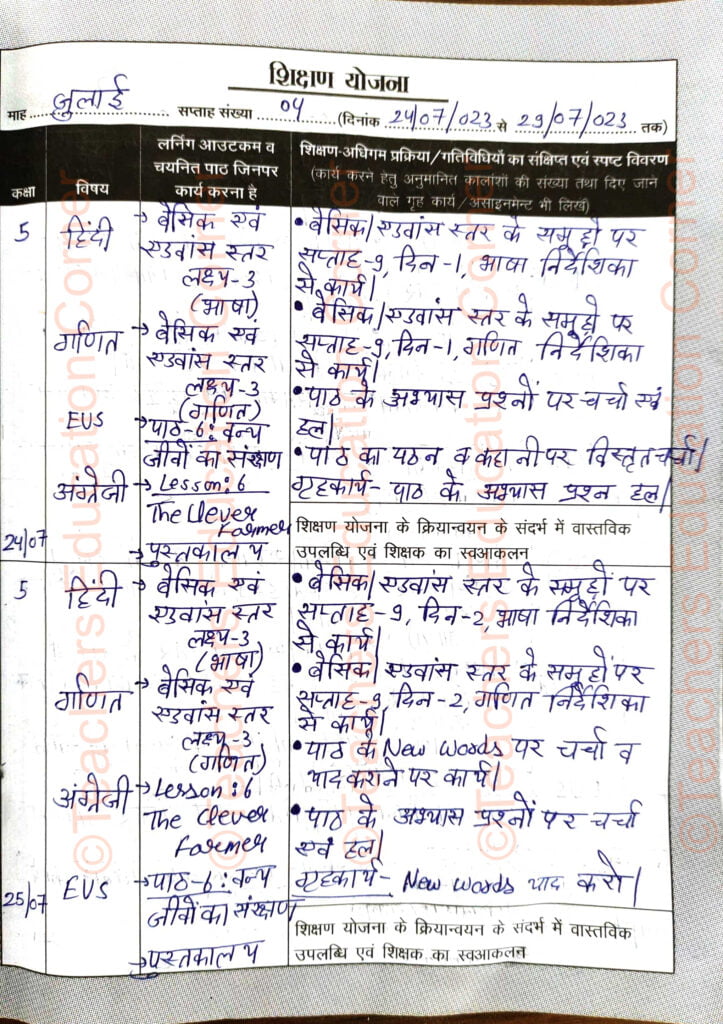 शिक्षण योजना
माह जुलाई सप्ताह संख्या 04 (दिनांक 24/07/023 से 29/07/023 तक)
कक्षा विषय लर्निंग आउटकम व चयनित पाठ जिनपर कार्य करना है शिक्षण-अधिगम प्रक्रिया/गतिविधियों का संक्षिप्त एवं स्पष्ट विवरण
(कार्य करने हेतु अनुमानित कालांशों की संख्या तथा दिए जाने
वाले गृह कार्य / असाइनमेंट भी लिखें)
5 हिंदी → बैसिक एवं
एडवांस स्तर
लक्ष्य-3
(भाषा)
• बैसिक/एडवांस स्तर के समूहों पर
सप्ताह-9, दिन-1, भाषा निर्देशिका
से कार्य|
गणित → बैसिक एवं
एडवांस स्तर
लक्ष्य-3
(गणित)
• बैसिक/एडवांस स्तर के समूहों पर
सप्ताह-9, दिन-1, गणित निर्देशिका
से कार्य|
EVS → पाठ-6: वन्य
जीवों का संरक्षण
• पाठ के अभ्यास प्रश्नों पर चर्चा एवं
हल|
अंग्रेजी → Lesson: 6
The Clever
Farmer
• पाठ का पठन व कहानी पर विस्तृत चर्चा|
गृहकार्य- पाठ के अभ्यास प्रश्न हल|
24/07 → पुस्तकालय
शिक्षण योजना के क्रियान्वयन के संदर्भ में वास्तविक
उपलब्धि एवं शिक्षक का स्वआकलन
5 हिंदी → बैसिक एवं
एडवांस स्तर
लक्ष्य-3
(भाषा)
• बैसिक/एडवांस स्तर के समूहों पर
सप्ताह-9, दिन-2, भाषा निर्देशिका
से कार्य|
गणित → बैसिक एवं
एडवांस स्तर
लक्ष्य-3
(गणित)
• बैसिक/एडवांस स्तर के समूहों पर
सप्ताह-9, दिन-2, गणित निर्देशिका
से कार्य|
अंग्रेजी → Lesson: 6
The Clever
Farmer
• पाठ के New words पर चर्चा व
याद कराने पर कार्य|
25/07 EVS → पाठ-6: वन्य
जीवों का संरक्षण
→ पुस्तकालय
• पाठ के अभ्यास प्रश्नों पर चर्चा
एवं हल|
गृहकार्य- New words याद करो|
शिक्षण योजना के क्रियान्वयन के संदर्भ में वास्तविक
उपलब्धि एवं शिक्षक का स्वआकलन
©Teachers Education Corner
©Teachers Education Corner
©Teachers Education Corner
©Teachers Education Corner